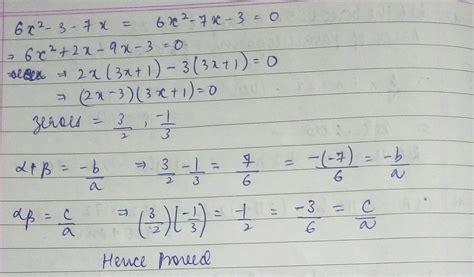 6x² - 3 - 7x = 6x² - 7x - 3 = 0
⇒ 6x² + 2x - 9x - 3 = 0
⇒ 2x (3x + 1) - 3 (3x + 1) = 0
⇒ (2x - 3) (3x + 1) = 0
zeroes = 3/2 , -1/3
α + β = -b/a ⇒ 3/2 - 1/3 = 7/6 = -(-7)/6 = -b/a
αβ = c/a ⇒ (3/2) (-1/3) = -1/2 = -3/6 = c/a
Hence Proved